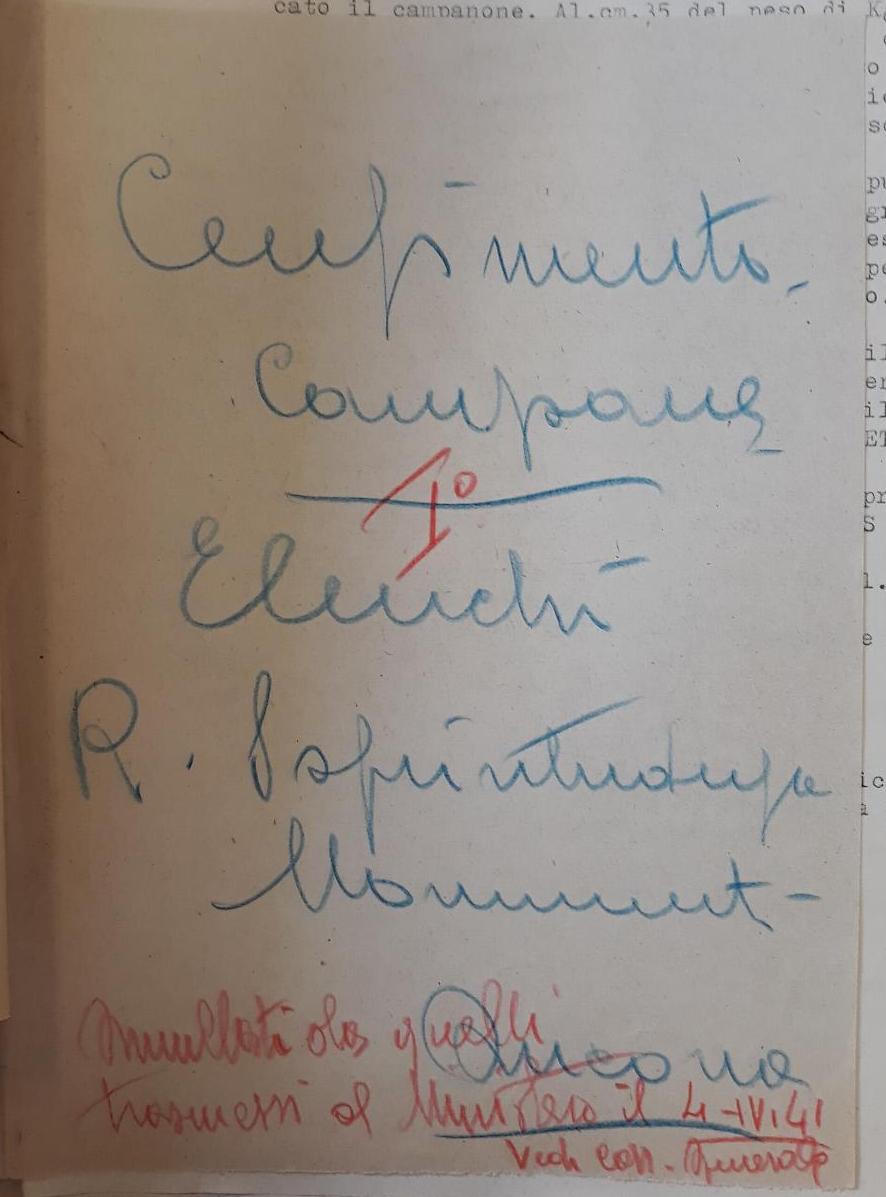 cato il campanone. Al.cm.35 del peso di K
Censimento.
Campane
1°
Elenchi
R. Sopraintendenza
Monument-
Ancona
Annullati da quelli
trasmessi al Ministero il 4-IV.41
Vedi corr. Generale